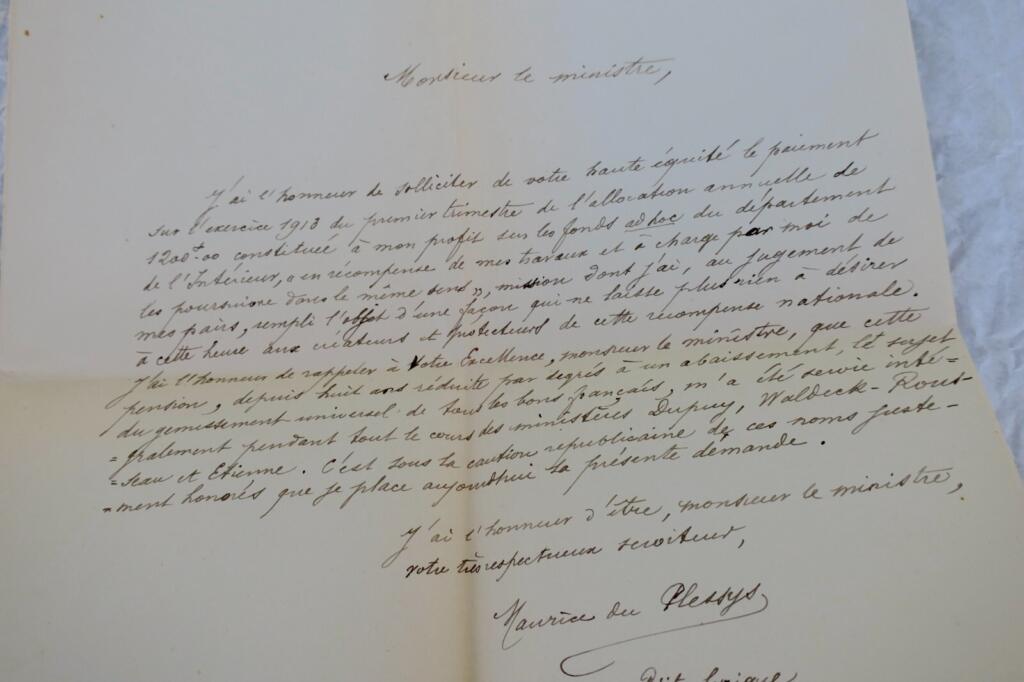 Monsieur le ministre,
J'ai l'honneur de solliciter de votre haute équité le paiement
sur l'exercice 1913 du premier trimestre de l'allocation annuelle de
1200f.00 constituée à mon profit sur les fonds ad hoc du département
de l'Intérieur, « en récompense de mes travaux et à charge par moi de
les poursuivre dans le même sens », mission dont j'ai, au jugement de
mes pairs, rempli l'objet d'une façon qui ne laisse plus rien à désirer
à cette heure aux créateurs et protecteurs de cette récompense nationale.
J'ai l'honneur de rappeler à Votre Excellence, monsieur le ministre, que cette
pension, depuis huit ans réduite par degrés à un abaissement, le sujet
du gémissement universel de tous les bons français, m'a été servie inté-
-gralement pendant tout le cours des ministères Dupuy, Waldeck-Rous-
-seau et Etienne. C'est sous la caution républicaine de ces noms juste-
-ment honorés que je place aujourd'hui sa présente demande.
J'ai l'honneur d'être, monsieur le ministre,
votre très respectueux serviteur,
Maurice du Plessys